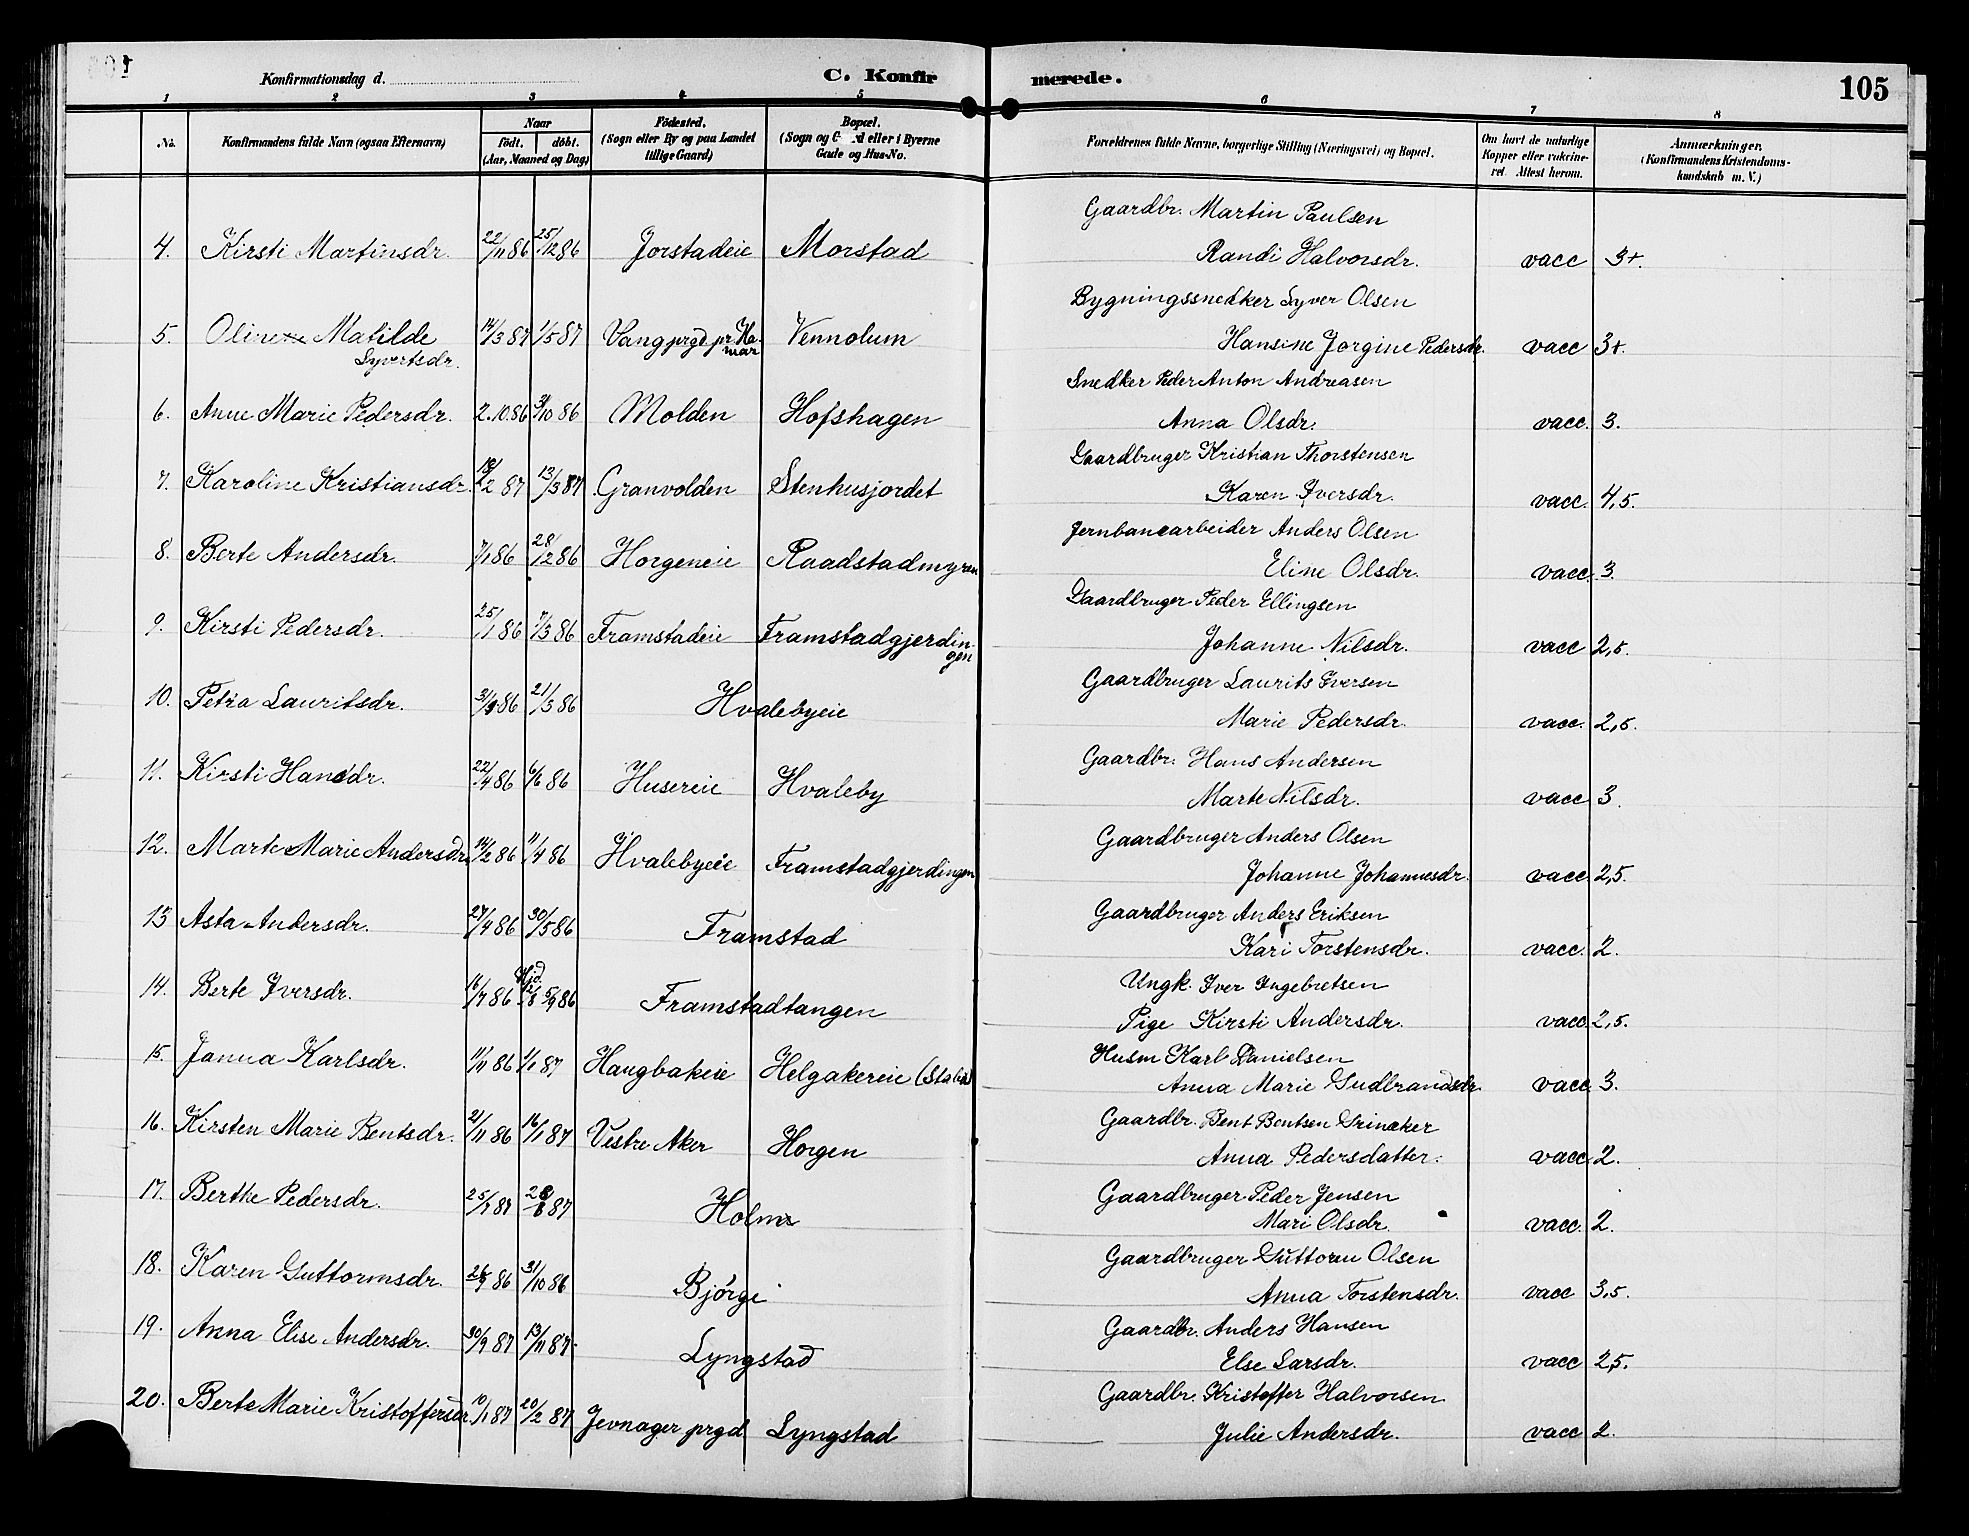 Konfirmationsdag d. C. Konfirmerede. 105
1 2 3 4 5 6 7 8
No. Konfirmandens fulde Navn (ogsaa Efternavn) Naar født. døbt. (Aar, Maaned og Dag) Fødested. (Sogn eller By og paa Landet tillige Gaard) Bopæl. (Sogn og G d eller i Byerne Gade og Hus-No. Forældrenes fulde Navne, borgerlige Stilling (Næringsvei) og Bopæl. Om havt de naturlige Kopper eller vakcineret. Attest herom. Anmærkninger. (Konfirmandens Kristendomskundskab m. V.)
Gaardbr. Martin Paulsen
4. Kirsti Martinsdr. 22/11 86 25/12 86 Jorstadeie Morstad Randi Halvorsdr. vacc 3+.
Bygningssnedker Syver Olsen
5. Oline Matilde Syvertsdr. 14/3 87 1/5 87 Vang prgd pr. Hamar Vennolum Hansine Jorgine Pedersdr. vacc 3+.
Snedker Peder Anton Andreasen
6. Anne Marie Pedersdr. 2.10.86 31/10 86 Molden Hofshagen Anna Olsdr. vacc. 3.
Gaardbruger Kristian Thorstensen
7. Karoline Kristiansdr. 2 87 13/3 87 Granvolden Stenhusjordet Karen Iversdr. vacc. 4,5.
Jernbanearbeider Anders Olsen
8. Berte Andersdr. 7/1 86 28/12 86 Horgeneie Raadstadmyren Eline Olsdr. vacc. 3.
Gaardbruger Peder Ellingsen
9. Kirsti Pedersdr. 25/1 86 7/3 86 Framstadeie Framstadgjerdingen Johanne Nilsdr. vacc 2,5.
Gaardbruger Laurits Iversen
10. Petra Lauritsdr. 86 21/3 86 Hvalebyeie Marie Pedersdr. vacc. 2,5.
Gaardbr. Hans Andersen
11. Kirsti Hansdr. 22/4 86 6/6 86 Husereie Hvaleby Marte Nilsdr. vacc 3.
Gaardbruger Anders Olsen
12. Marte Marie Andersdr. 14/2 86 11/4 86 Hvalebyeie Framstadgjerdingen Johanne Johannesdr. vacc 2,5.
Gaardbruger Anders Eriksen
13 Asta Andersdr. 27/4 86 30/5 86 Framstad Kari Torstensdr. vacc. 2.
Ungk. Iver Ingebretsen
14. Berte Iversdr. 16/7 86 Hjd. 5/9 86 Framstadtangen Pige Kirsti Andersdr. vacc. 2,5.
Husm Karl Danielsen
15. Janna Karlsdr. 11/11 86 1/1 87 Haugbakeie Helgakereie Anna Marie Gudbrandsdr. vacc 3.
Gaardbr. Bent Bentsen Grinaker
16. Kirsten Marie Bentsdr. 21/11 86 16/1 87 Vestre Aker Horgen Anna Pedersdatter. vacc 2.
Gaardbruger Peder Jensen
17. Berthe Pedersdr. 87 87 Holm Mari Olsdr. vacc. 2.
Gaardbruger Guttorm Olsen
18. Karen Guttormsdr. 86 31/10 86 Bjørge Anna Torstensdr. vacc 3,5.
Gaardbr. Anders Hansen
19. Anna Elise Andersdr. 30/9 87 13/11 87 Lyngstad Else Larsdr. vacc 2,5.
Gaardbr. Kristoffer Halvorsen
20. Berte Marie Kristoffersdr 10/1 87 20/2 87 Jevnager prgd Lyngstad Julie Andersdr. vacc 2.